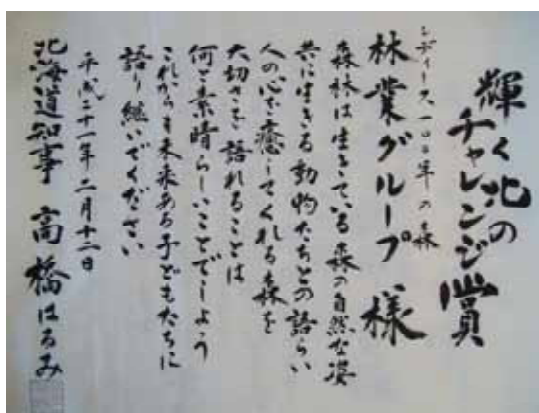 輝く北の
チャレンジ賞
レディース一〇〇年の森
林業グループ 様
森林は生きている 森の自然な姿
共に生きる動物たちとの語らい
人の心を癒してくれる森を
大切さを語れることは
何と素晴らしいことでしょう
これからも未来ある子どもたちに
語り継いでください
平成二十一年二月十二日
北海道知事 高橋はるみ